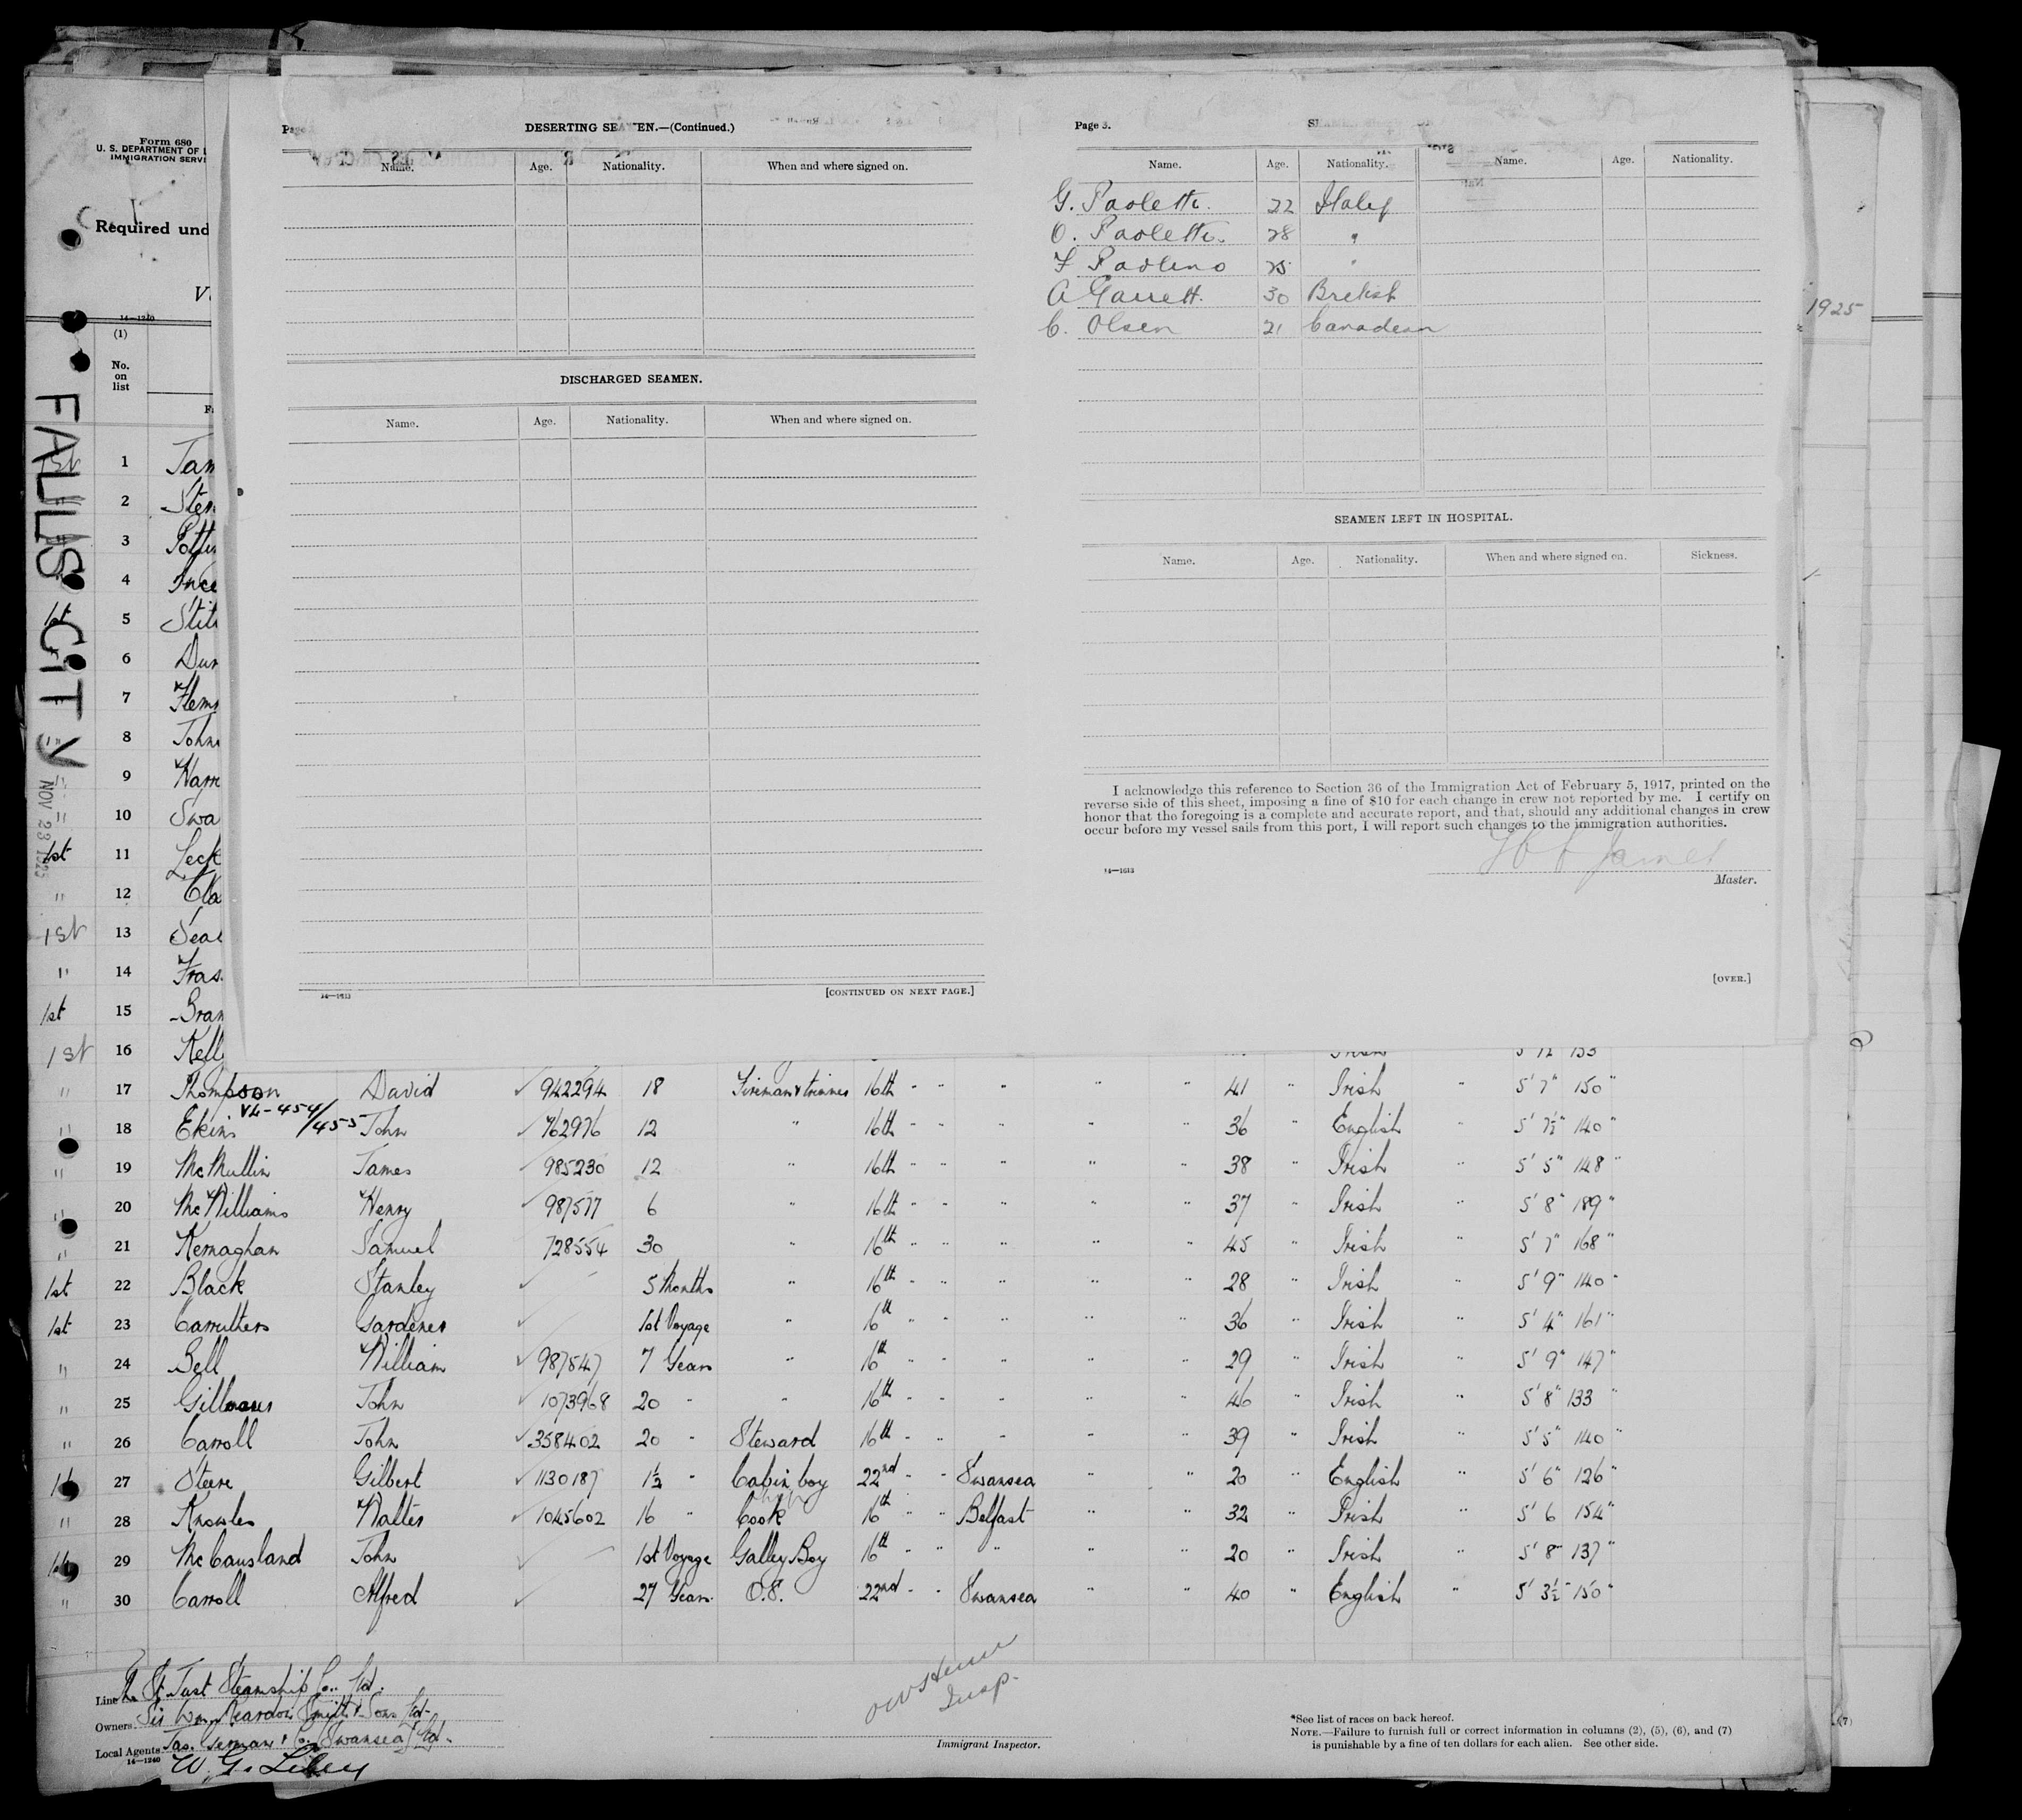 Form 680
U. S. DEPARTMENT OF
IMMIGRATION SERVI
Required und
14—1240
(1)
No.
on
list
FALLS CITY
NOV 23 1925
1925
DESERTING SEAMEN.—(Continued.)
Name. Age. Nationality. When and where signed on.
DISCHARGED SEAMEN.
Name. Age. Nationality. When and where signed on.
14—1613
[CONTINUED ON NEXT PAGE.]
Page 3.
Name. Age. Nationality. Name. Age. Nationality.
G. Paoletti. 22 Italy
O. Paoletti. 28 "
F Paolino 25 "
A Garrett. 30 British
C. Olsen 21 Canadian
SEAMEN LEFT IN HOSPITAL.
Name. Age. Nationality. When and where signed on. Sickness.
I acknowledge this reference to Section 36 of the Immigration Act of February 5, 1917, printed on the
reverse side of this sheet, imposing a fine of $10 for each change in crew not reported by me. I certify on
honor that the foregoing is a complete and accurate report, and that, should any additional changes in crew
occur before my vessel sails from this port, I will report such changes to the immigration authorities.
James
14—1613
Master.
[OVER.]
1st 1 Jam
2 Ster
" 3 Potti
4 Ince
1st 5 Stit
6 Dun
7 Flem
" 8 John
" 9 Harr
" 10 Swa
1st 11 Leck
" 12 Cla
1st 13 Sea
" 14 Fras
1st 15 Bran
1st 16 Kelly
" 17 Thompson David ✓ 942294 18 Fireman & trimmer 16th " " " " " 41 " Irish " 5' 7" 150 "
VL-454/455
" 18 Ekins John ✓ 762976 12 " 16th " " " " " 36 " English " 5' 7½" 140 "
" 19 McMullin James ✓ 985230 12 " 16th " " " " " 38 " Irish " 5' 5" 148 "
" 20 McWilliams Henry ✓ 987577 6 " 16th " " " " " 37 " Irish " 5' 8" 189 "
" 21 Kernaghan Samuel 728554 30 " 16th " " " " " 45 " Irish " 5' 7" 168 "
1st 22 Black Stanley ✓ 5 Months " 16th " " " " " 28 " Irish " 5' 9" 140 "
1st 23 Carruthers Gardener ✓ 1st Voyage " 16th " " " " " 36 " Irish " 5' 4" 161 "
" 24 Bell William ✓ 987547 7 Years " 16th " " " " " 29 " Irish " 5' 9" 147 "
" 25 John ✓ 1073968 20 " " 16th " " " " " 46 " Irish " 5' 8" 133 "
" 26 Carroll John ✓ 358402 20 " Steward 16th " " " " " 39 " Irish " 5' 5" 140 "
27 Steere Gilbert ✓ 1130187 1½ " Cabin boy 22nd " " Swansea " " 20 " English " 5' 6" 126 "
" 28 Knowles Walter ✓ 1045602 16 " Cook 16th " " Belfast " " 32 " Irish " 5' 6 154 "
29 McCausland John ✓ 1st Voyage Galley Boy 16th " " " " " 20 " Irish " 5' 8" 137 "
" 30 Carroll Alfred ✓ 27 Years O.S. 22nd " " Swansea " " 40 " English " 5' 3½" 150 "
Line St. Just Steamship Co. Ltd.
Owners Sir Wm. Reardon Smith & Sons Ltd.
Local Agents Jas. German & Co. Swansea Ltd.
14—1240
W. G. Liley
Insp.
Immigrant Inspector.
*See list of races on back hereof.
NOTE.—Failure to furnish full or correct information in columns (2), (5), (6), and (7)
is punishable by a fine of ten dollars for each alien. See other side.